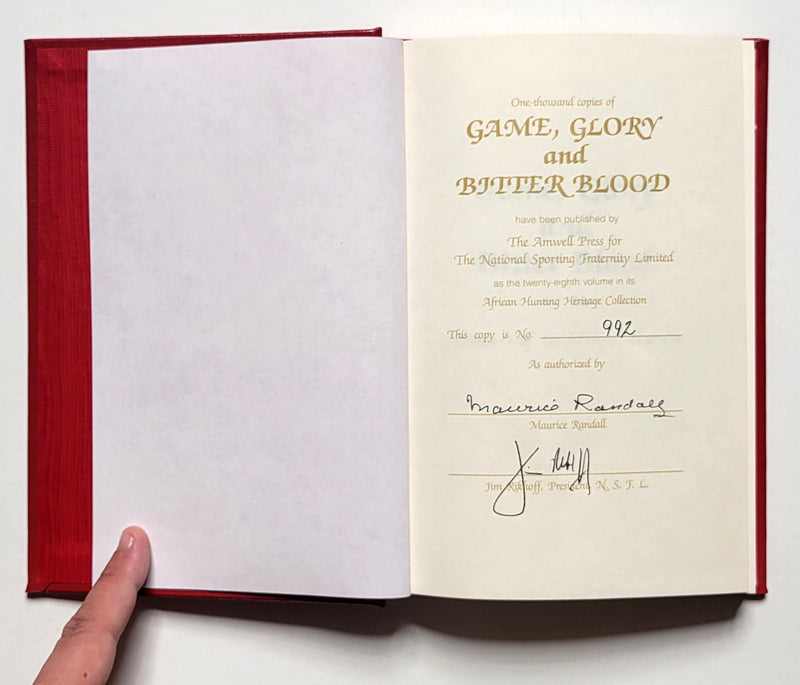 One-thousand copies of
GAME, GLORY
and
BITTER BLOOD
have been published by
The Amwell Press for
The National Sporting Fraternity Limited
as the twenty-eighth volume in its
African Hunting Heritage Collection
This copy is No. 992
As authorized by
Maurice Randall
Maurice Randall
Jim
Jim Rikhoff, President, N. S. F. L.